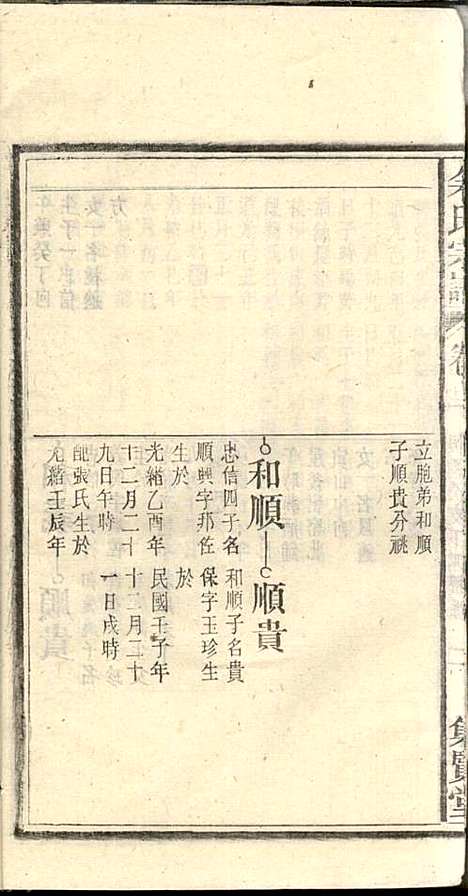 氏宗譜
卷
集賢堂
立胞弟和順
子順貴分祧
和順
忠信四子名
順興字邦佐
生於
光緒乙酉年
十二月二十
九日午時
配張氏生於
光緒壬辰年
順貴
和順子名貴
保字玉珍生
於
民國壬子年
十二月二十
一日戌時